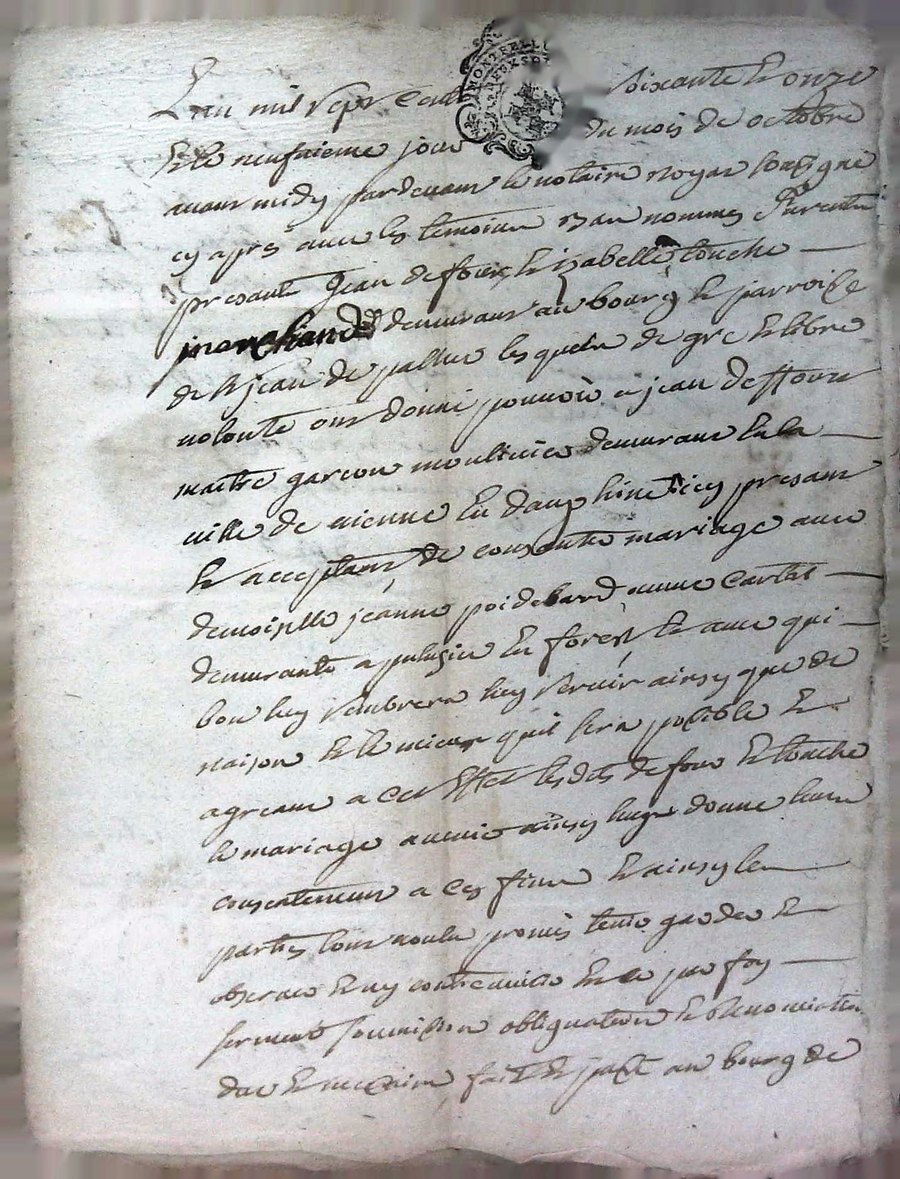 L'an mil sept cent soixante et onze
et le neufvieme jour du mois de octobre
avant midy pardevant le notaire royal soussigné
cy apres avec les temoins bas nommes furent
presants Jean defour et izabelle touche
marchands demurant au bourg et parroisse
de st jean de pallue les quels de gré et libre
volonté ont donné pouvoir a jean deffour
maitre garcon moulinier demurant en la
ville de vienne en dauphiné icy presant
et acceptant de contracter mariage avec
demoiselle jeanne poidebard
demurante a pelusin en forest et avec qui
bon luy semblera luy servir ainsy que de
raison et le mieux quil sera possible et
agreant a cet effet les dits defour et touche
le mariage donne leur
consentement a ces fins et ainsy les
parties l'ont voulu promis tenir garder et
observer et ny contrevenir par foy
serment soumission obligation et renontiation
fait et passé au bourg de